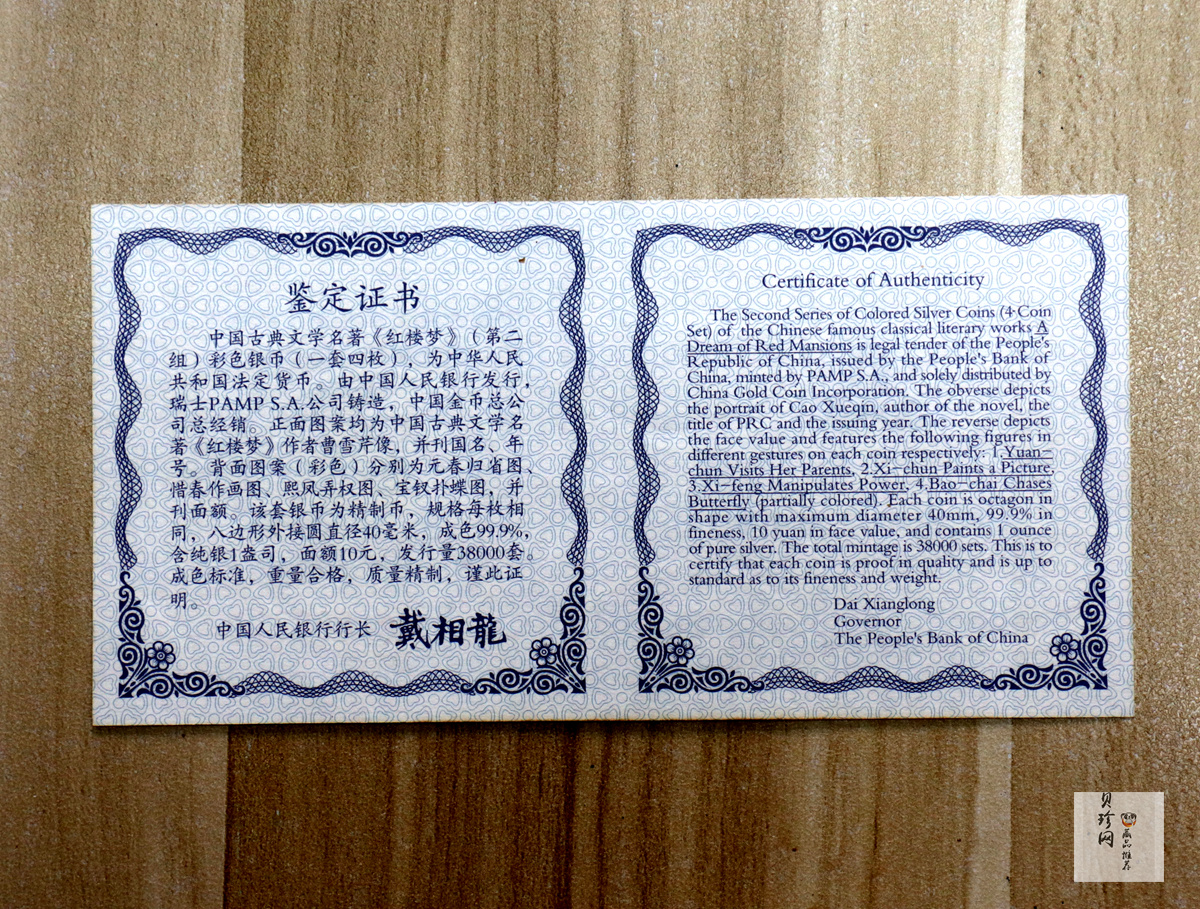 鉴定证书
中国古典文学名著《红楼梦》（第二
组）彩色银币（一套四枚），为中华人民
共和国法定货币。由中国人民银行发行，
瑞士PAMP S.A.公司铸造，中国金币总公
司总经销。正面图案均为中国古典文学名
著《红楼梦》作者曹雪芹像，并刊国名、年
号。背面图案（彩色）分别为元春归省图、
惜春作画图、熙凤弄权图、宝钗扑蝶图，并
刊面额。该套银币为精制币，规格每枚相
同，八边形外接圆直径40毫米，成色99.9%，
含纯银1盎司，面额10元，发行量38000套。
成色标准，重量合格，质量精制，谨此证
明。
中国人民银行行长 戴相龍
Certificate of Authenticity
The Second Series of Colored Silver Coins (4-Coin
Set) of the Chinese famous classical literary works A
Dream of Red Mansions is legal tender of the People's
Republic of China, issued by the People's Bank of
China, minted by PAMP S.A., and solely distributed by
China Gold Coin Incorporation. The obverse depicts
the portrait of Cao Xueqin, author of the novel, the
title of PRC and the issuing year. The reverse depicts
the face value and features the following figures in
different gestures on each coin respectively: 1.Yuan-
chun Visits Her Parents, 2.Xi-chun Paints a Picture,
3.Xi-feng Manipulates Power, 4.Bao-chai Chases
Butterfly (partially colored). Each coin is octagon in
shape with maximum diameter 40mm, 99.9% in
fineness, 10 yuan in face value, and contains 1 ounce
of pure silver. The total mintage is 38000 sets. This is to
certify that each coin is proof in quality and is up to
standard as to its fineness and weight.
Dai Xianglong
Governor
The People's Bank of China
贝珍网
藏品推荐